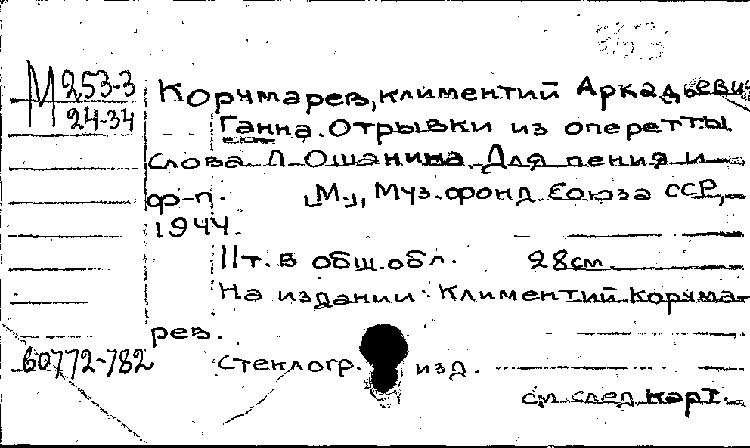 М 253-3
24-34
Корчмарев, Климентий Аркадьеви
Ганна. Отрывки из оперетты
Слова Л. Ошанина. Для пения и
ф-п. [М.], Муз. фонд Союза ССР,
1944.
11т. в общ. обл. 28см
На издании: Климентий Корчма-
рев.
60772-782 Стеклогр. изд.
см. след. карт.